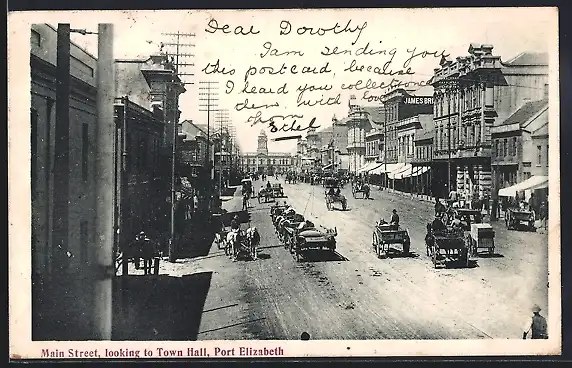 Dear Dorothy
I am sending you
this postcard, because
I heard you collection
dem with love
from
Ethel
JAMES BR
Main Street, looking to Town Hall, Port Elizabeth